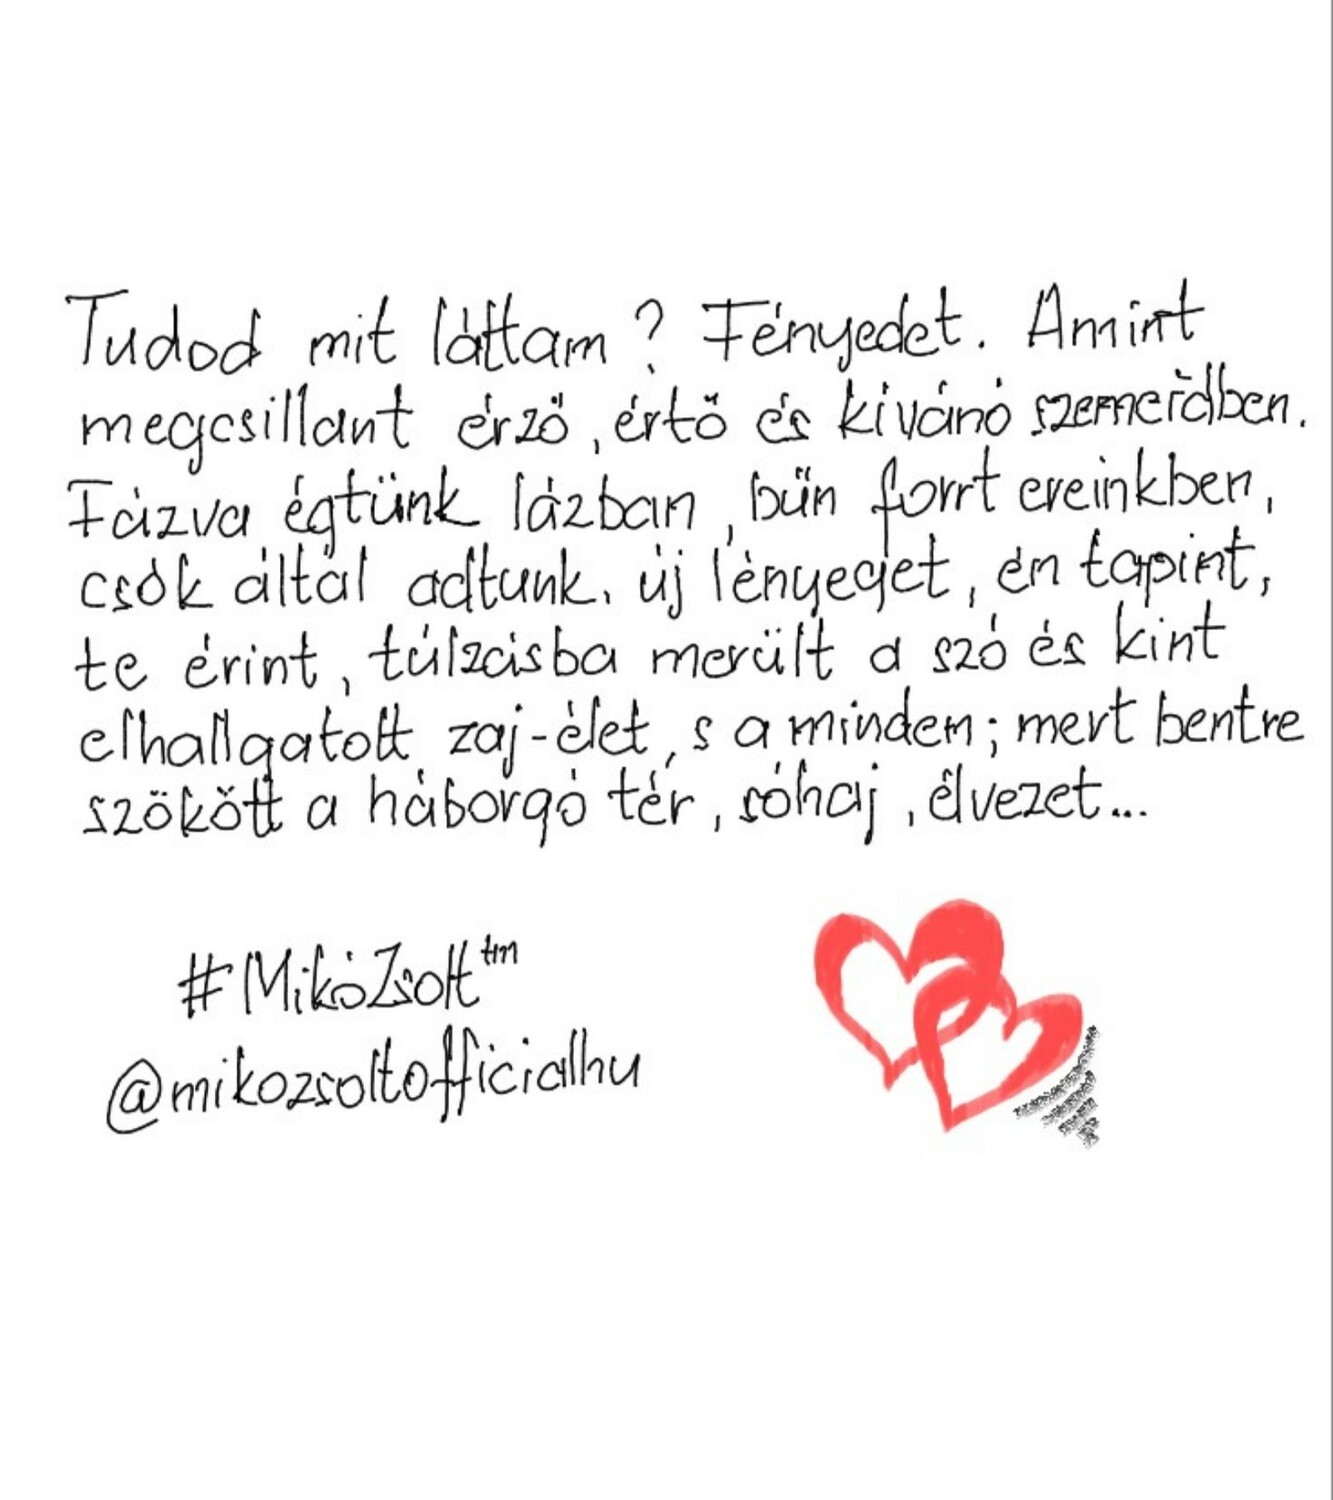 Tudod mit láttam? Fényedet. Amint
megcsillant érző, értő és kívánó szemeidben.
Fázva égtünk lázban, bűn forrt ereinkben,
csók által adtunk. új lényeget, én tapint,
te érint, túlzásba merült a szó és kint
elhallgatott zaj-élet, s a minden; mert bentre
szökött a háborgó tér, sóhaj, élvezet...
#MikóZsolt™
@mikozsoltofficialhu